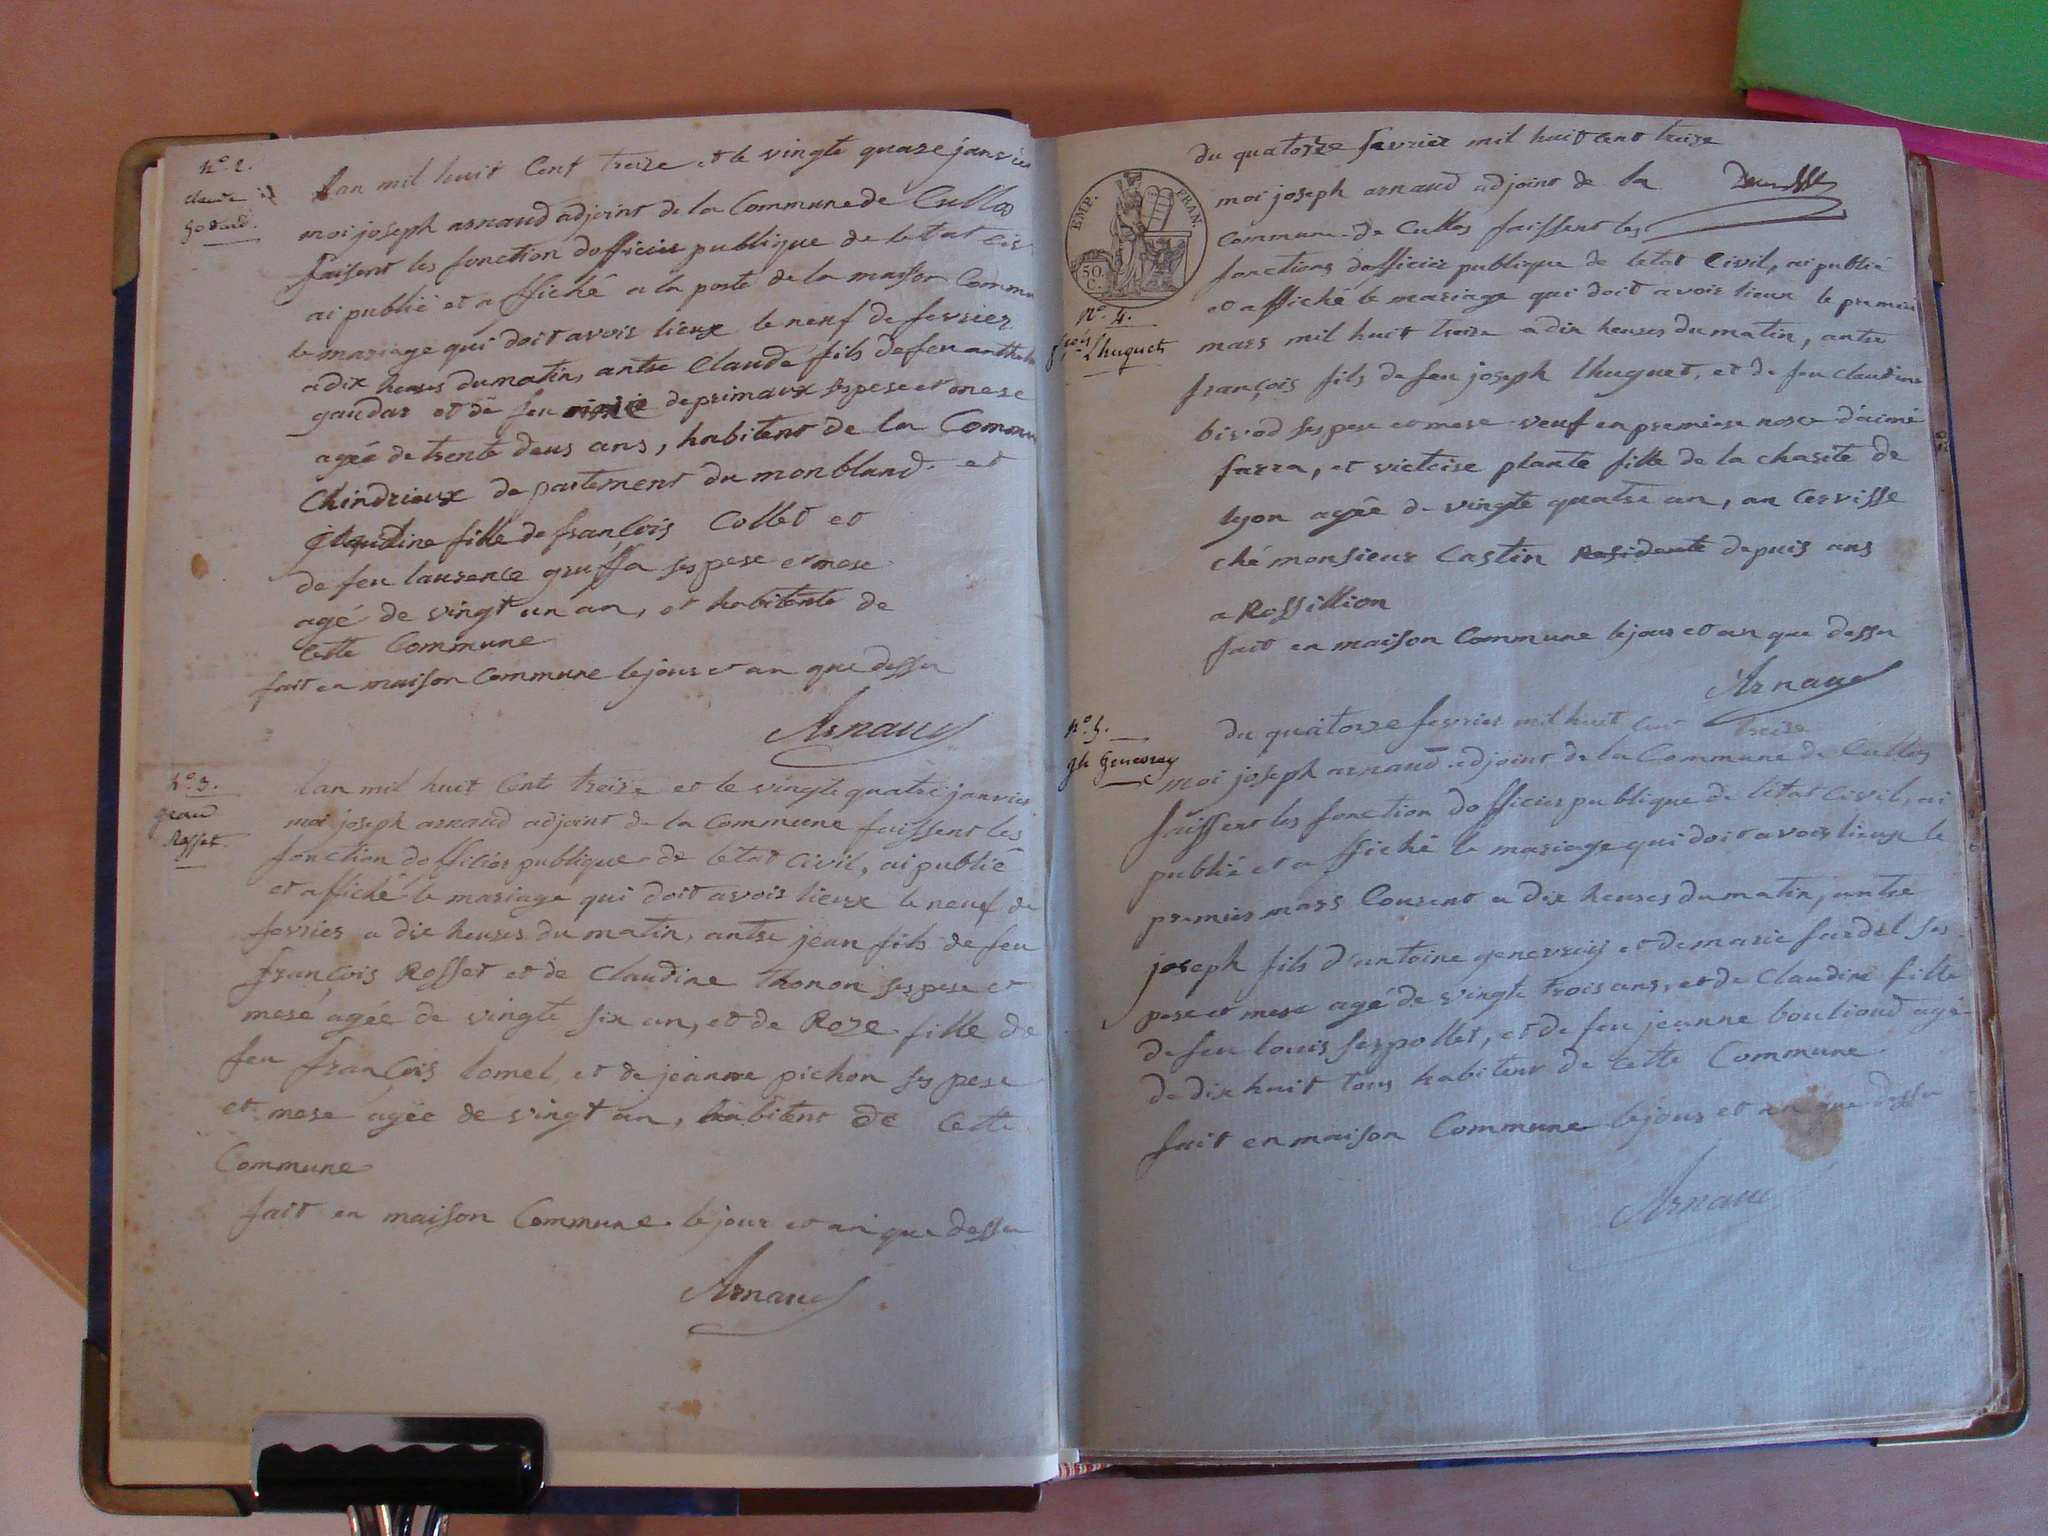 n.o 2.
Claude
godard.
Lan mil huit Cent treize et le vingte quatre janvier
moi joseph arnaud adjoint de la Commune de Cullos
faisent les fonction dofficier publique de letat civ
ai publié et affiché a la porte de la maison Commu
le mariage qui doit avoir lieux le neuf de fevrier
a dix heures du matin, antre Claude fils de feu anthel
gaudar et de feu marie de primaux ses pere et mere
agéé de trente deus ans, habitent de la Commu
Chindrieux departement du monbland et
Claudine fille de franCois Collet et
de feu laurence gruffa ses pere et mere
agé de vingt un an, et habitente de
Cette Commune
fait en maison Commune le jour et an que dessu
Arnaud
n.o 3.
grand
Rosset.
lan mil huit Cent treize et le vingte quatre janvier
moi joseph arnaud adjoint de la Commune faissent les
fonction dofficier publique de letat Civil, ai publié
et affiché le mariage qui doit avoir lieux le neuf de
fevrier a dix heures du matin, antre jean fils de feu
franCois Rosset et de Claudine Thonon ses pere et
mere agéé de vingte six an, et de Roze fille de
feu franCois lomel et de jeanne pichon ses pere
et mere agéé de vingt an, habitent de Cette
Commune
fait en maison Commune le jour et an que dessu
Arnaud
du quatorze fevrier mil huit cent treize
EMP. FRAN.
50.
C.
moi joseph arnaud adjoint de la
Commune de Cullos faissent les
fonctions dofficier publique de letat Civil, ai publié
et affiché le mariage qui doit avoir lieux le premier
n.o 4.
frois Lhuguet
mars mil huit treize a dix heures du matin, antre
françois fils de feu joseph lhuguet, et de feu Claudine
bivod ses pere et mere veuf en premiere nosce d'aimé
farra, et victoise plante fille de la charite de
lyon agéé de vingte quatre an, an Cervisse
ché monsieur Castin Residente depuis ans
a Rossillion
fait en maison Commune le jour et an que dessu
Arnaud
n.o 5.
gh genevray
du quatorze fevrier mil huit cent treize
moi joseph arnaud adjoint de la Commune de Cullos
faissent les fonction dofficier publique de l'état Civil, ai
publié et affiché le mariage qui doit avoir lieux le
premier mars Courent a dix heures du matin, antre
joseph fils d'antoine genevray et de marie fardel ses
pere et mere agé de vingte trois ans, et de Claudine fille
de feu louis serpollet, et de feu jeanne boutioud agé
de dix huit tous habitent de Cette Commune
fait en maison Commune le jour et an que dessu
Arnaud